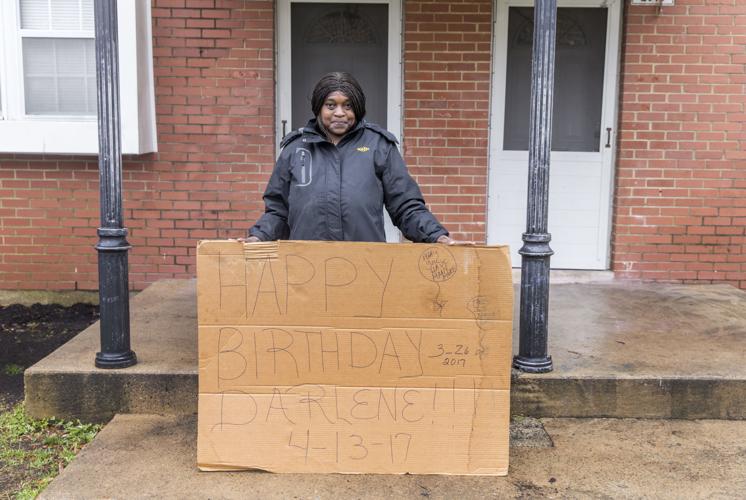 HAPPY
BIRTHDAY 3-26
2017
DARLENE!!!
4-13-17